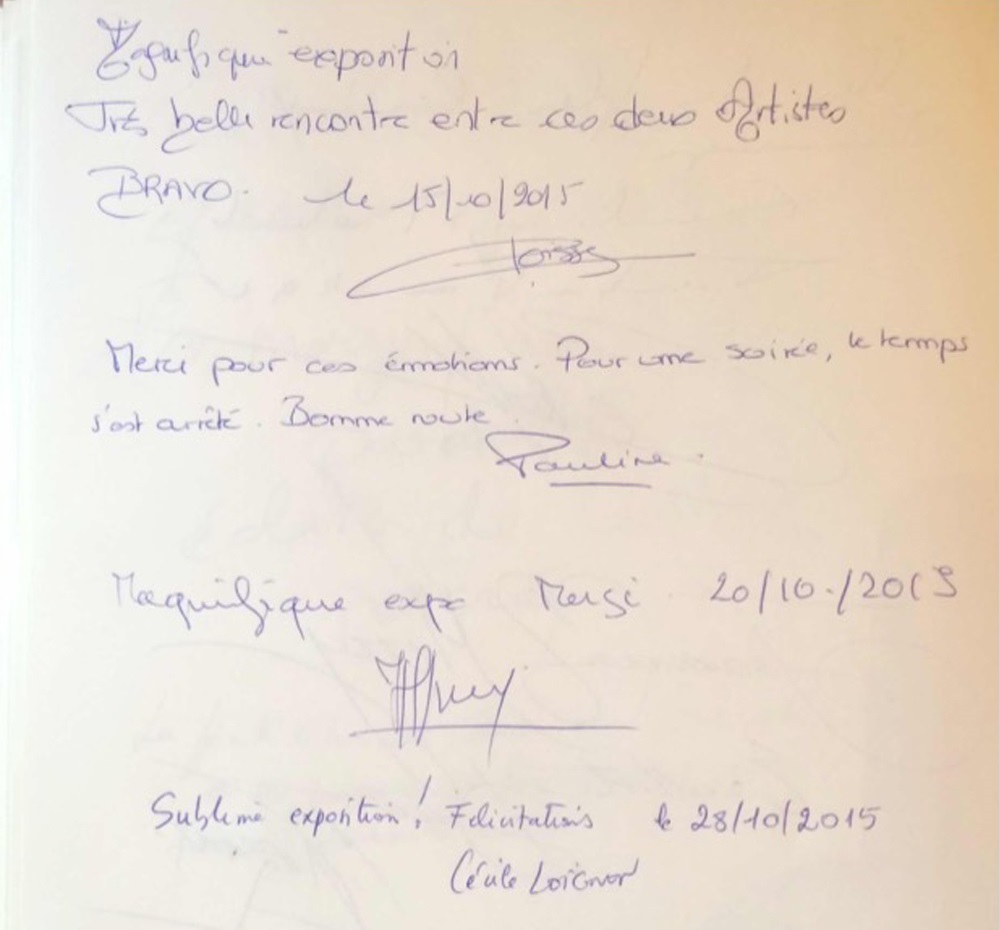 Magnifique exposition
Très belle rencontre entre ces deux Artistes
BRAVO. le 15/10/2015
Merci pour ces émmotions. Pour une soirée, le temps
s'est arrêté. Bonne route.
Pauline.
Maquifique expo Mersi 20/10./2015
Sublime exposition! Félicitations le 28/10/2015
Cécile